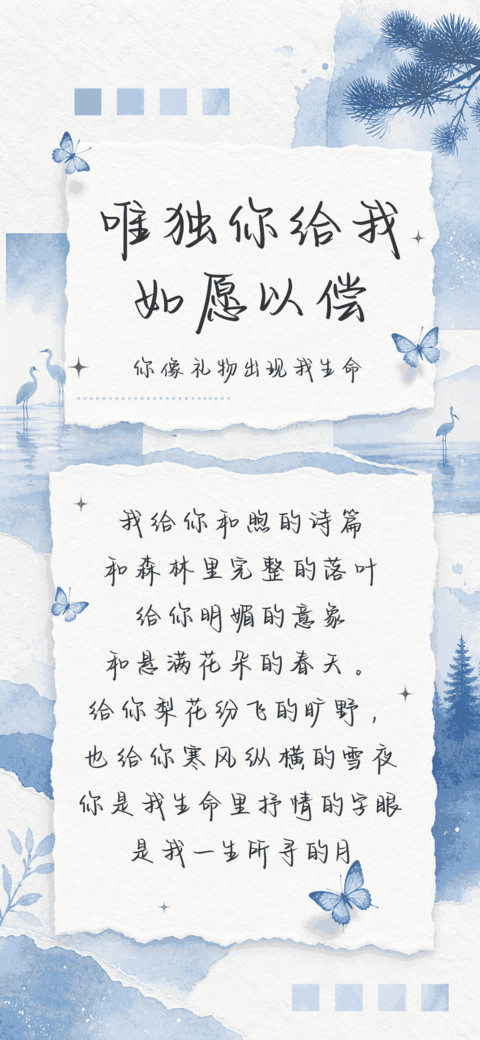 唯独你给我
如愿以偿
你像礼物出现我生命
我给你和煦的诗篇
和森林里完整的落叶
给你明媚的意象
和悬满花朵的春天。
给你梨花纷飞的旷野，
也给你寒风纵横的雪夜
你是我生命里抒情的字眼
是我一生所寻的月